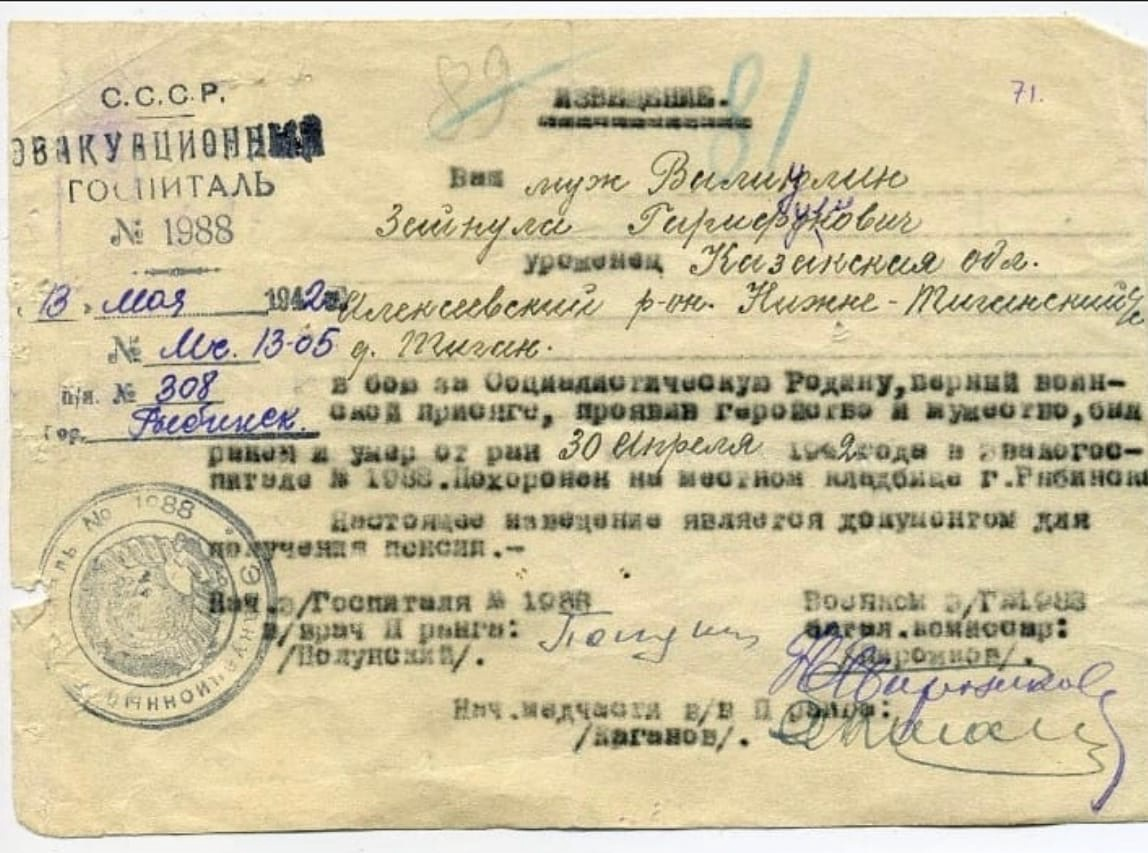 89
81
71.
С.С.С.Р.
ЭВАКУАЦИОННЫЙ
ГОСПИТАЛЬ
№ 1988
"13" мая 1942г.
№ Мс. 13-05
п/я. № 308
Гор. Рыбинск.
ИЗВЕЩЕНИЕ.
Ваш муж
Зейнула
уроженец Казанская обл.
Алексеевский р-он. Нижне-Тиганский с/с
д. Тиган.
в бою за Социалистическую Родину, верный воин-
ской присяге, проявив геройство и мужество, был
ранен и умер от ран 30 Апреля 1942 года в эвакогос-
питале № 1988. Похоронен на местном кладбище г.Рыбинска
Настоящее извещение является документом для
получения пенсии.-
Нач.э/Госпиталя № 1988
в/врач II ранга:
/Полунский/.
Военком э/Г №1988
батал.комиссар:
Нач.медчасти в/в II ранга:
/Каганов/.
№ 1988